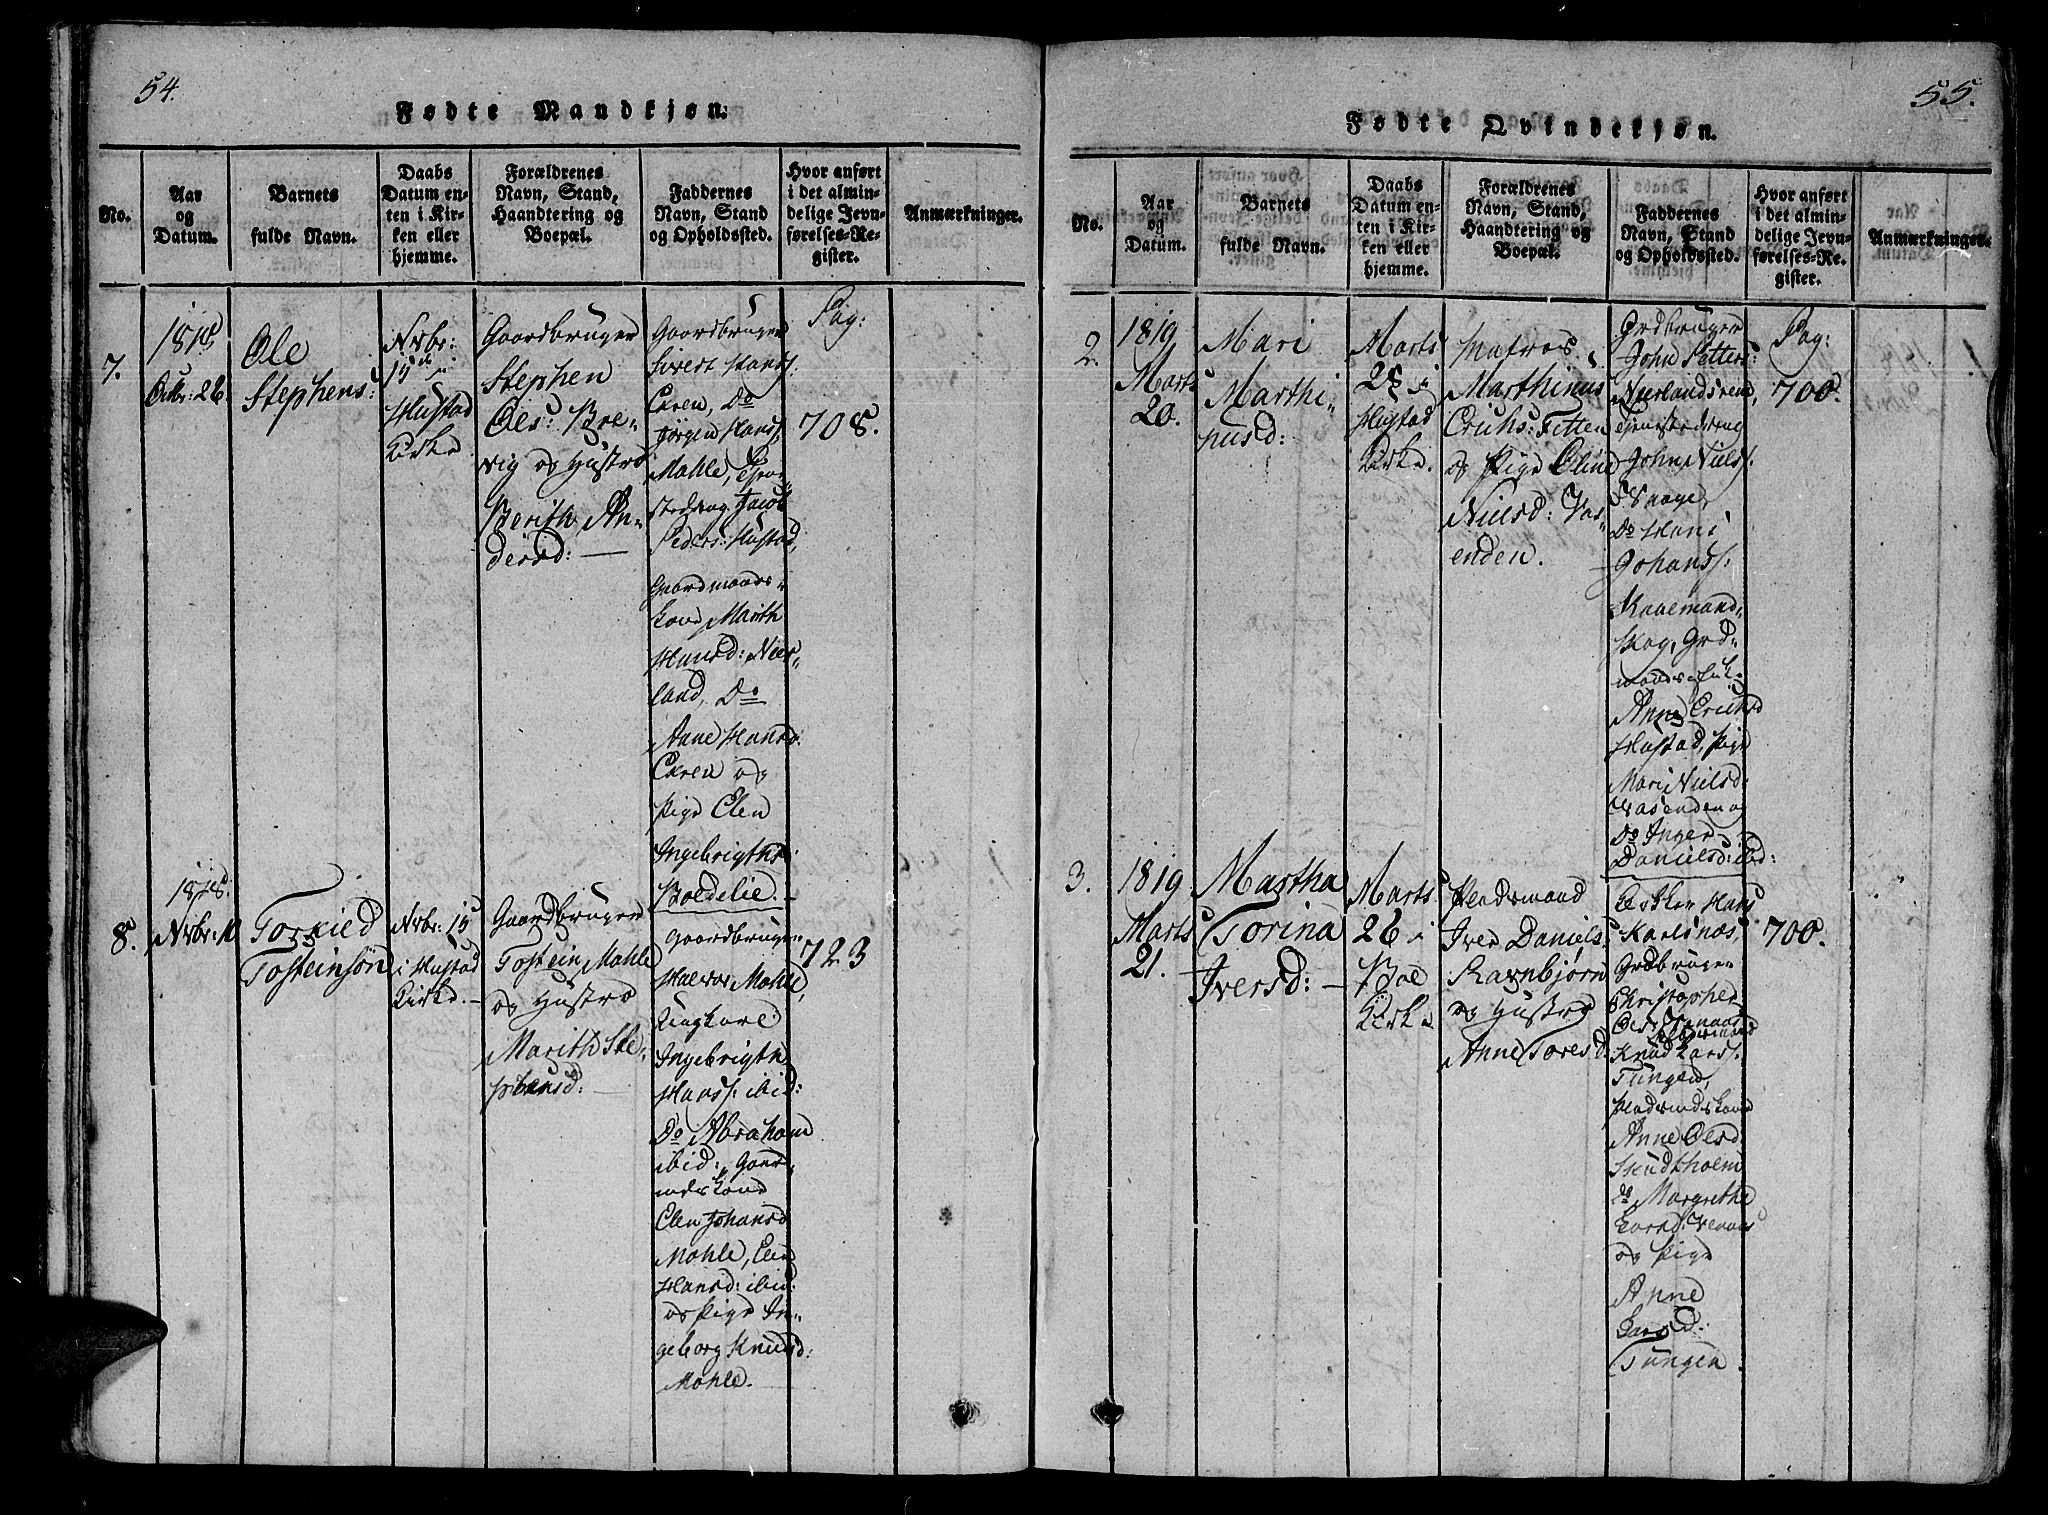 54.
Fødte Mandkjøn.
No.
Aar
og
Datum.
Barnets
fulde Navn.
Daabs
Datum en-
ten i Kir-
ken eller
hjemme.
Forældrenes
Navn, Stand,
Haandtering og
Boepæl.
Faddernes
Navn, Stand
og Opholdssted.
Hvor anført
i det almin-
delige Jevn-
førelses-Re-
gister.
Anmærkninger.
7.
1818
Octbr: 26.
Ole
Stephens:
Nvbr:
15de i
Hustad
Kirke
Gaardbruger
Stephen
Oles: Bre-
vig og Hustro
Berith An-
dersd:
Gaardbruger
Sivert Hans
Eeren, Do
Jørgen Hans
Mahle,
Jacob
Peders: Hustad,
Gaardmands-
kone Marith
Hansd: Nier-
land, Do
Anne Hansd.
Eeren og
Pige Elen
Ingebrigths:
Boldelie.
Pag:
708.
8.
1818.
Nvbr: 10
Torkied
Tosteinsøn
Nvbr: 15
i Hustad
Kirke.
Gaardbruger
Tostein Mahle
og Hustro
Marith Ste-
phensd:
Gaardbruger
Halvor Mahle,
Ungkarl
Ingebrigth
Hanss: ibid:
Do Abraham
ibid: Gaard-
mdskone
Elen Johansd
Mahle, Elen
Hansd: ibid:
og Pige In-
geborg Knudsd:
Mahle.
723
55.
Fødte Qvindekjøn.
No.
Aar
og
Datum.
Barnets
fulde Navn.
Daabs
Datum en-
ten i Kir-
ken eller
hjemme.
Forældrenes
Navn, Stand,
Haandtering og
Boepæl.
Faddernes
Navn, Stand
og Opholdssted.
Hvor anført
i det almin-
delige Jevn-
førelses-Re-
gister.
Anmærkninger.
2.
1819
Marts
20.
Mari
Marthi-
nusd:
Marts
25 i
Hustad
Kirke.
Matros
Marthinus
Erichs: Fetten
og Pige Oline
Nielsd: Vas-
enden.
Grdbruger
John Petters:
Nierlandsreve,
Tjenestedreng
John Niels:
Do Hans
Johans:
Grd-
mands
Anne Erichsd
Hustad, Pige
Mari Nielsd:
Vasenden og
Do Inger
Danielsd: ibd:
Pag:
700.
3.
1819
Marts
21.
Martha
Torina
Iversd:
Marts
26 i
Boe
Kirke
Pladsmand
Iver Daniels:
Ravnbjørn
og Hustro
Anne Toresd
Hans
Karlsnæs,
Grdbruger
Christopher
Knud Lars:
Tungen,
Pladsmdskone
Anne Olesd
Skudtholm
do Margrethe
Larsd:
og Pige
Anne
Larsd:
Tungen.
700.